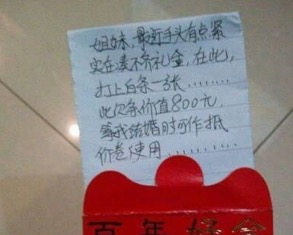 姐妹,最近手头有点紧
实在凑不齐礼金,在此,
打上白条一张.......
此欠条价值800元,
等我结婚时可作抵
价卷使用.........
百年好合